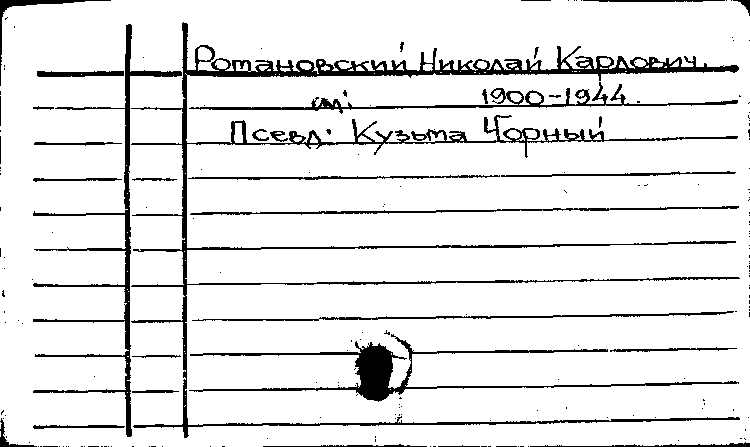 Романовский Николай Карлович.
см: 1900-1944.
Псевд: Кузьма Чорный